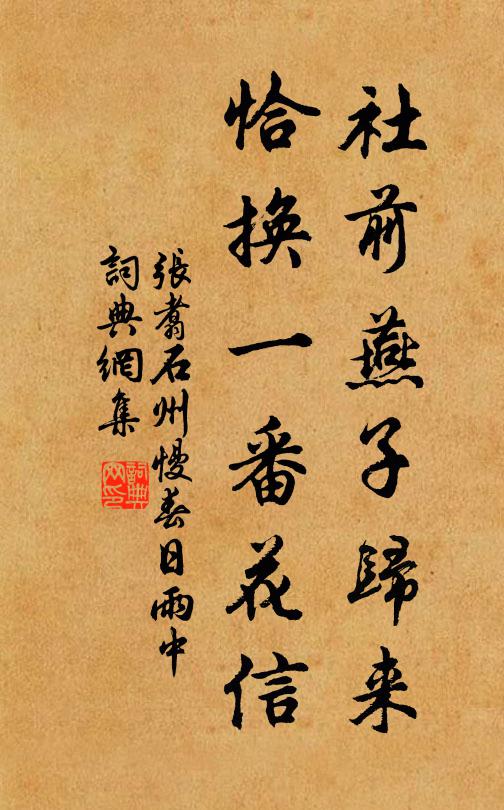 社前燕子歸来
恰換一番花信
張翥石州慢春日雨中
詞典網集
詞典
网印